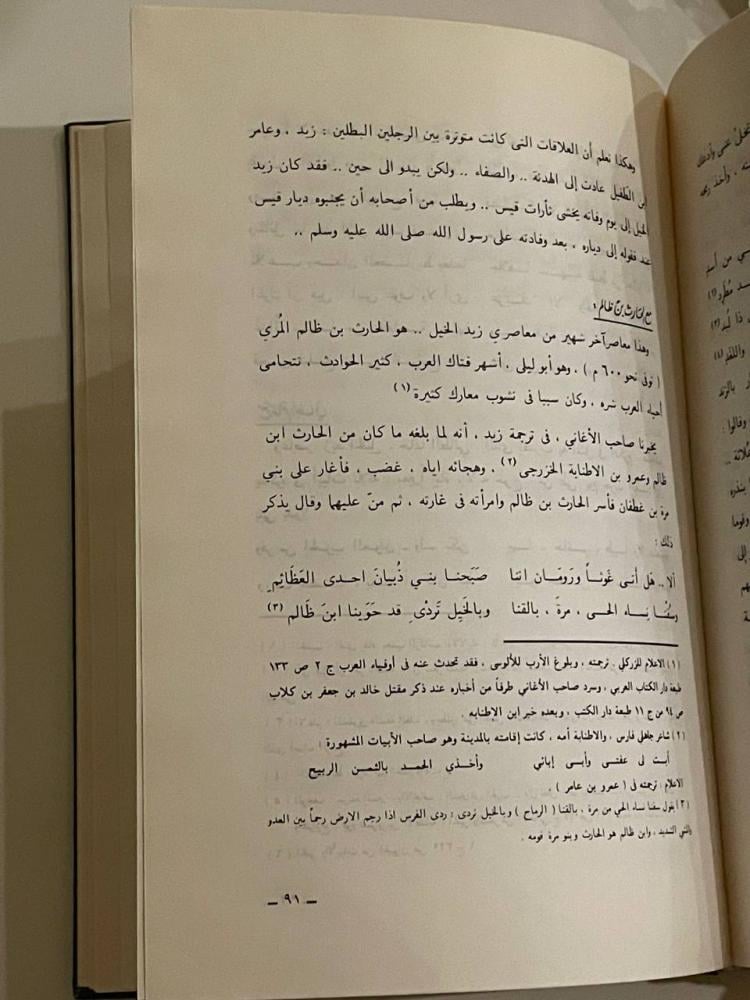 وهكذا نعلم أن العلاقات التى كانت متوترة بين الرجلين البطلين : زيد ، وعامر
ابن الطفيل عادت إلى الهدنة .. والصفاء .. ولكن يبدو الى حين .. فقد كان زيد
الخيل إلى يوم وفاته يخشى ثأرات قيس .. ويطلب من أصحابه أن يجنبوه ديار قيس
عند قفوله إلى دياره ، بعد وفادته على رسول الله صلى الله عليه وسلم ..
مع الحارث بن ظالم :
وهذا معاصر آخر شهير من معاصري زيد الخيل .. هو الحارث بن ظالم المُري
( توفى نحو ٦٠٠ م ) ، وهو أبو ليلى ، أشهر فتاك العرب ، كثير الحوادث ، تتحامى
أحياء العرب شره ، وكان سببا فى نشوب معارك كثيرة (١)
يخبرنا صاحب الأغاني ، فى ترجمة زيد ، أنه لما بلغه ما كان من الحارث ابن
ظالم وعمرو بن الاطنابة الخزرجى (٢) ، وهجائه اياه ، غضب ، فأغار على بني
مرة بن غطفان فأسر الحارث بن ظالم وامرأته فى غارته ، ثم منّ عليهما وقال يذكر
ذلك :
ألا .. هَل أتى غَوثاً وَرَومَان اننا صَبَحنا بني ذُبيانَ احدى العَظَائِمِ
وسُقْنا نِساء الحى ، مرةَ ، بالقنا وبالخَيل تَردْى قد حَوَينا ابنَ ظَالم (٣)
(١) الاعلام للزركلي . ترجمته ، وبلوغ الأرب للألوسى ، فقد تحدث عنه فى أوفياء العرب ج ٢ ص ١٣٣
طبعة دار الكتاب العربي ، وسرد صاحب الأغاني طرفا من أخباره عند ذكر مقتل خالد بن جعفر بن كلاب
ص ٩٤ من ج ١١ طبعة دار الكتب ، وبعده خبر ابن الإطنابه .
(٢) شاعر جاهلي فارس ، والاطنابة أمه ، كانت إقامته بالمدينة وهو صاحب الأبيات المشهورة :
أبت لى عفتى وأبى إبائي وأخذي الحمد بالثمن الربيح
الاعلام : ترجمته فى ( عمرو بن عامر ) .
(٣) يقول سقنا نساء الحي من مرة ، بالقنا ( الرماح ) وبالخيل تردى : ردى الفرس اذا رجم الارض رجماً بين العدو
والمشي الشديد ، وابن ظالم هو الحارث وبنو مرة قومه .
ــ ٩١ ــ